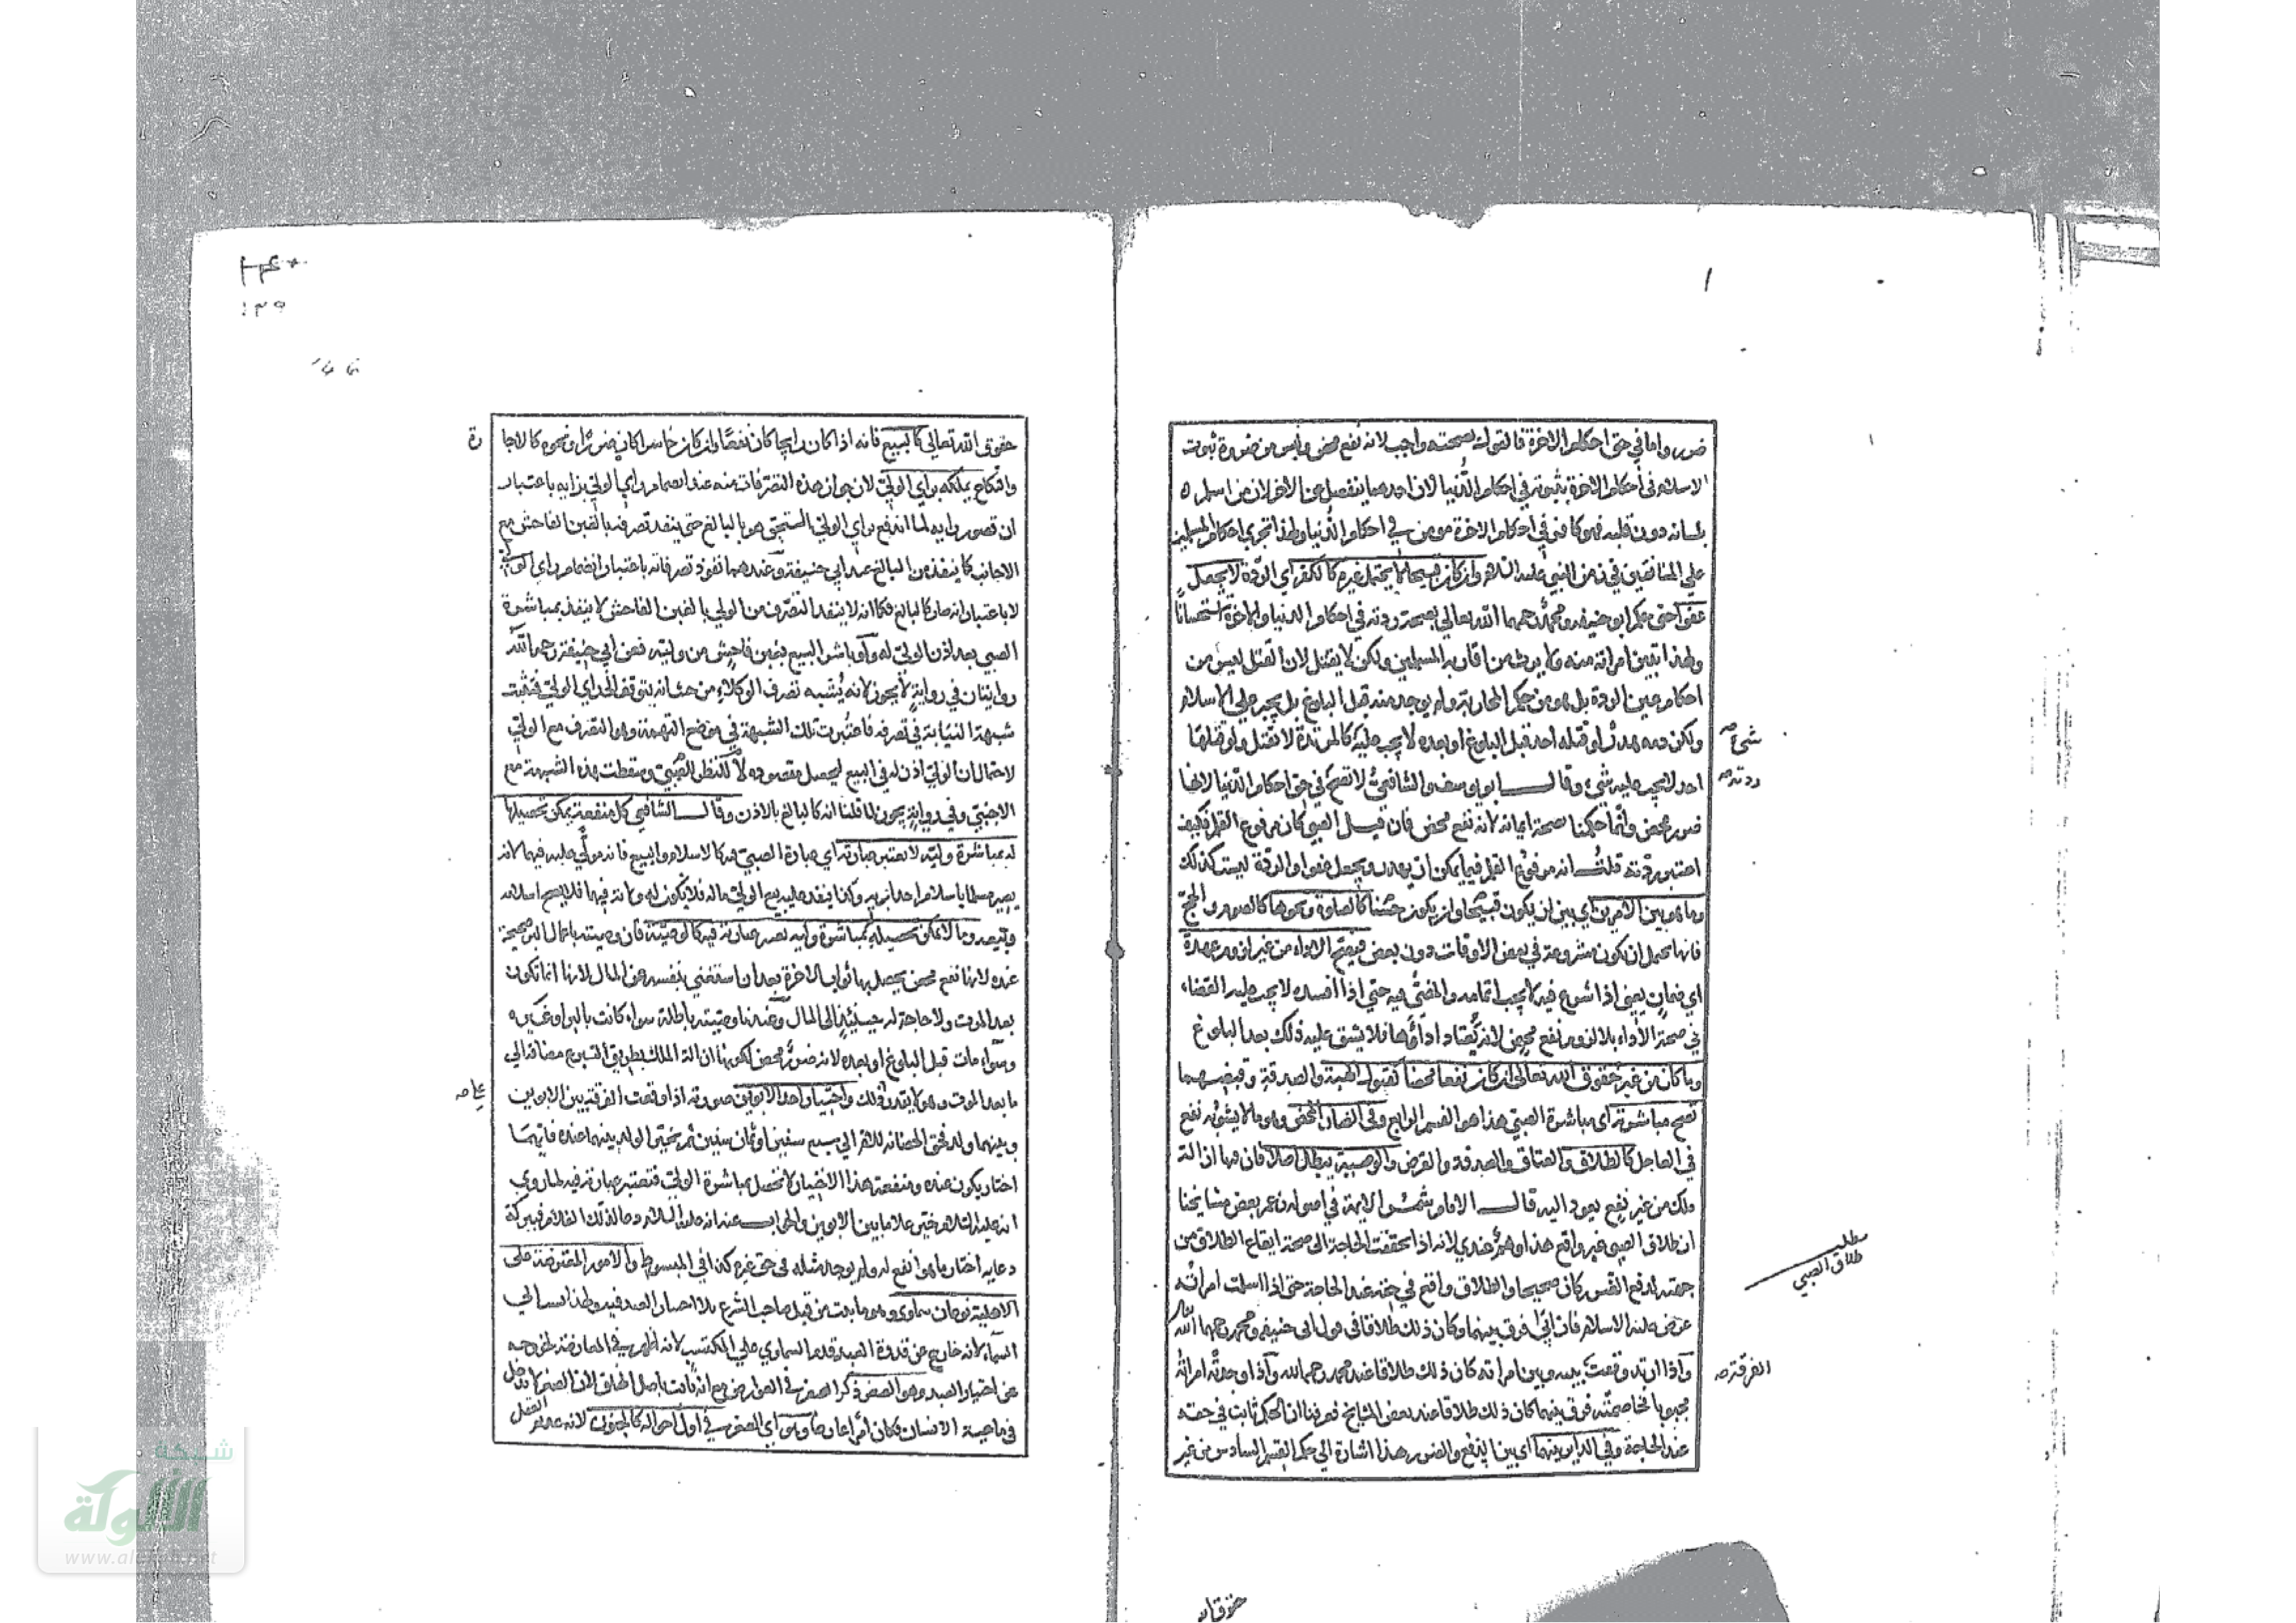 ضرر واما في حق احكام الاخرة فالقول بصحته واجب لانه نفع محض وليس من ضرورة ثبوت
الاسلام في احكام الاخرة ثبوته في احكام الدنيا لان احدهما ينفصل عن الاخر لان من اسلم
بلسانه دون قلبه فهو كافر في احكام الاخرة مومن في احكام الدنيا ولهذا تجري احكام المسلمين
علي المنافقين في زمن النبي عليه السلام وان كان قبيحا لا يحتمل غيره كالكفر اي الردة لا يجعل
عفوا حتي حكم ابو حنيفه ومحمد رحمهما الله تعالي بصحة ردته في احكام الدنيا والاخرة استحسانا
ولهذا تبين امراته منه ولا يرث من اقاربه المسلمين ولكن لا يقتل لان القتل ليس من
احكام عين الردة بل هو من حكم المحاربة ولم يوجد منه قبل البلوغ بل يجبر علي الاسلام
ولكن دمه هدر لو قتله احد قبل البلوغ او بعده لا يجب عليه كالمرتدة لا تقتل ولو قتلها
شئ صح
احد لا يجب عليه شئ وقال ابو يوسف والشافعي لا تصح في حق احكام الدنيا لانها
ردته صح
ضرر محض وانما حكمنا بصحة ايمانه لانه نفع محض فان قيل الصبي كان مرفوع القلم فكيف
اعتبر ردته قلت انه مرفوع القلم فيما يمكن ان يهدر ويجعل عفوا والردة ليست كذلك
وما هو بين الامرين اي بين ان يكون قبيحا وان يكون حسنا كالصلوة ونحوها كالصوم والحج
فانها يحتمل ان يكون مشروعة في بعض الاوقات دون بعض فيصح الاداء من غير لزوم عهدة
اي ضمان يعني اذا شرع فيه لا يجب اتمامه والمضي فيه حتي اذا افسده لا يجب عليه القضاء
في صحة الاداء بلا لزوم نفع محض لانه يعتاد اداؤها فلا يشق عليه ذلك بعد البلوغ
وما كان من غير حقوق الله تعالي ان كان نفعا محضا كقبول الهبة والصدقة وقبضهما
تصح مباشرته اي مباشرة الصبي هذا هو القسم الرابع وفي الضار المحض وهو ما لا يشوبه نفع
في العاجل كالطلاق والعتاق والصدقة والقرض والوصية يبطل اصلا فان فيها ازالة
ملك من غير نفع يعود اليه قال الامام شمس الايمة في اصوله زعم بعض مشايخنا
ان طلاق الصبي غير واقع هذا وهم عندي لانه اذا تحققت الحاجة الي صحة ايقاع الطلاق من
مطلب طلاق الصبي
جهته لدفع الضرر كان صحيحا والطلاق واقع في حقه عند الحاجة حتي اذا اسلمت امراته
عرض عليه الاسلام فان ابي فرق بينهما وكان ذلك طلاقا في قول ابي حنيفه ومحمد رحمهما الله
واذا ارتد وقعت بينه وبين امراته كان ذلك طلاقا عند محمد رحمه الله واذا وجدته امراته
الفرقة صح
مجبوبا فخاصمته فرق بينهما كان ذلك طلاقا عند بعض المشايخ فعرفنا ان الحكم ثابت في حقه
عند الحاجة وفي الداير بينهما اي بين النفع والضرر هذا اشارة الي حكم القسم السادس من غير
حقوق
١٣٩
حقوق الله تعالي كالبيع فانه اذا كان رابحا كان نفعا وان كان خاسرا كان ضررا ونحوه كالاجا
رة
والنكاح يملكه براي الولي لان جواز هذه التصرفات منه عند انضمام راي الولي برايه باعتبار
ان قصور رايه لما اندفع براي الولي التحق هو بالبالغ حتي ينفذ تصرفه بالغبن الفاحش مع
الاجانب كما ينفذ من البالغ عند ابي حنيفة وعندهما نفوذ تصرفاته باعتبار انضمام راي الولي
لا باعتبار انه صار كالبالغ فكما انه لا ينفذ التصرف من الولي بالغبن الفاحش لا ينفذ بمباشرة
الصبي بعد اذن الولي له ولو باشر البيع بغبن فاحش من وليه فعن ابي حنيفة رحمه الله
روايتان في رواية لا يجوز لانه يشبه تصرف الوكلاء من حيث انه يتوقف الي راي الولي فتثبت
شبهة النيابة في تصرفه فاعتبرت تلك الشبهة في موضع التهمة وهو التصرف مع الولي
لاحتمال ان الولي اذن له في البيع ليحصل مقصوده لا للنظر للصبي وسقطت هذه الشبهة مع
الاجنبي وفي رواية يجوز لما قلنا انه كالبالغ بالاذن وقال الشافعي كل منفعة يمكن تحصيلها
له بمباشرة وليه لا تعتبر عبارته اي عبارة الصبي فيه كالاسلام والبيع فانه مولي عليه فيهما لانه
يصير مسلما باسلام احد ابويه وكذا ينفذ عليه بيع الولي ماله فلا يكون له ولاية فيهما فلا يصح اسلامه
وبيعه وما لا يمكن تحصيله بمباشرة وليه تعتبر عبارته فيه كالوصية فان وصيته باعمال البر صحيحة
عنده لانها نفع محض يحصل بها ثواب الاخرة بعد ان استغني بنفسه عن المال لانها انما تكون
بعد الموت ولا حاجة له حينئذ الي المال وعندنا وصيته باطلة سواء كانت بالبر او غيره
وسواء مات قبل البلوغ او بعده لانه ضرر محض لكونها ازالة الملك بطريق التبرع مضافة الي
ما بعد الموت وهو لا يقدر ذلك واختيار احد الابوين صورته اذا وقعت الفرقة بين الابوين
علي صح
وبينهما ولد فحق الحضانة للام الي سبع سنين او ثمان سنين ثم يتخير الولد بينهما عنده فايهما
اختار يكون عنده ومنفعة هذا الاختيار لا تحصل بمباشرة الولي فتعتبر عبارته فيه لما روي
انه عليه السلام خير غلاما بين الابوين والجواب عنه انه عليه السلام دعا لذلك الغلام فببركة
دعايه اختار ما هو انفع له ولم يوجد مثله في حق غيره كذا في المبسوط والامور المعترضة علي
الاهلية نوعان سماوي وهو ما يثبت من قبل صاحب الشرع بلا اختيار العبد فيه ولهذا نسب الي
السماء لانه خارج عن قدرة العبد وقدم السماوي علي المكتسب لانه اظهر في المعارضة لخروجه
عن اختيار العبد وهو الصغر ذكر الصغر في العوارض مع انه ثابت باصل الخلق لان الصغر لا يدخل
في ماهية الانسان فكان امرا عارضا وهو اي الصغر في اول احواله كالجنون لانه عديم العقل
شبكة
الألوكة
www.alukah.net